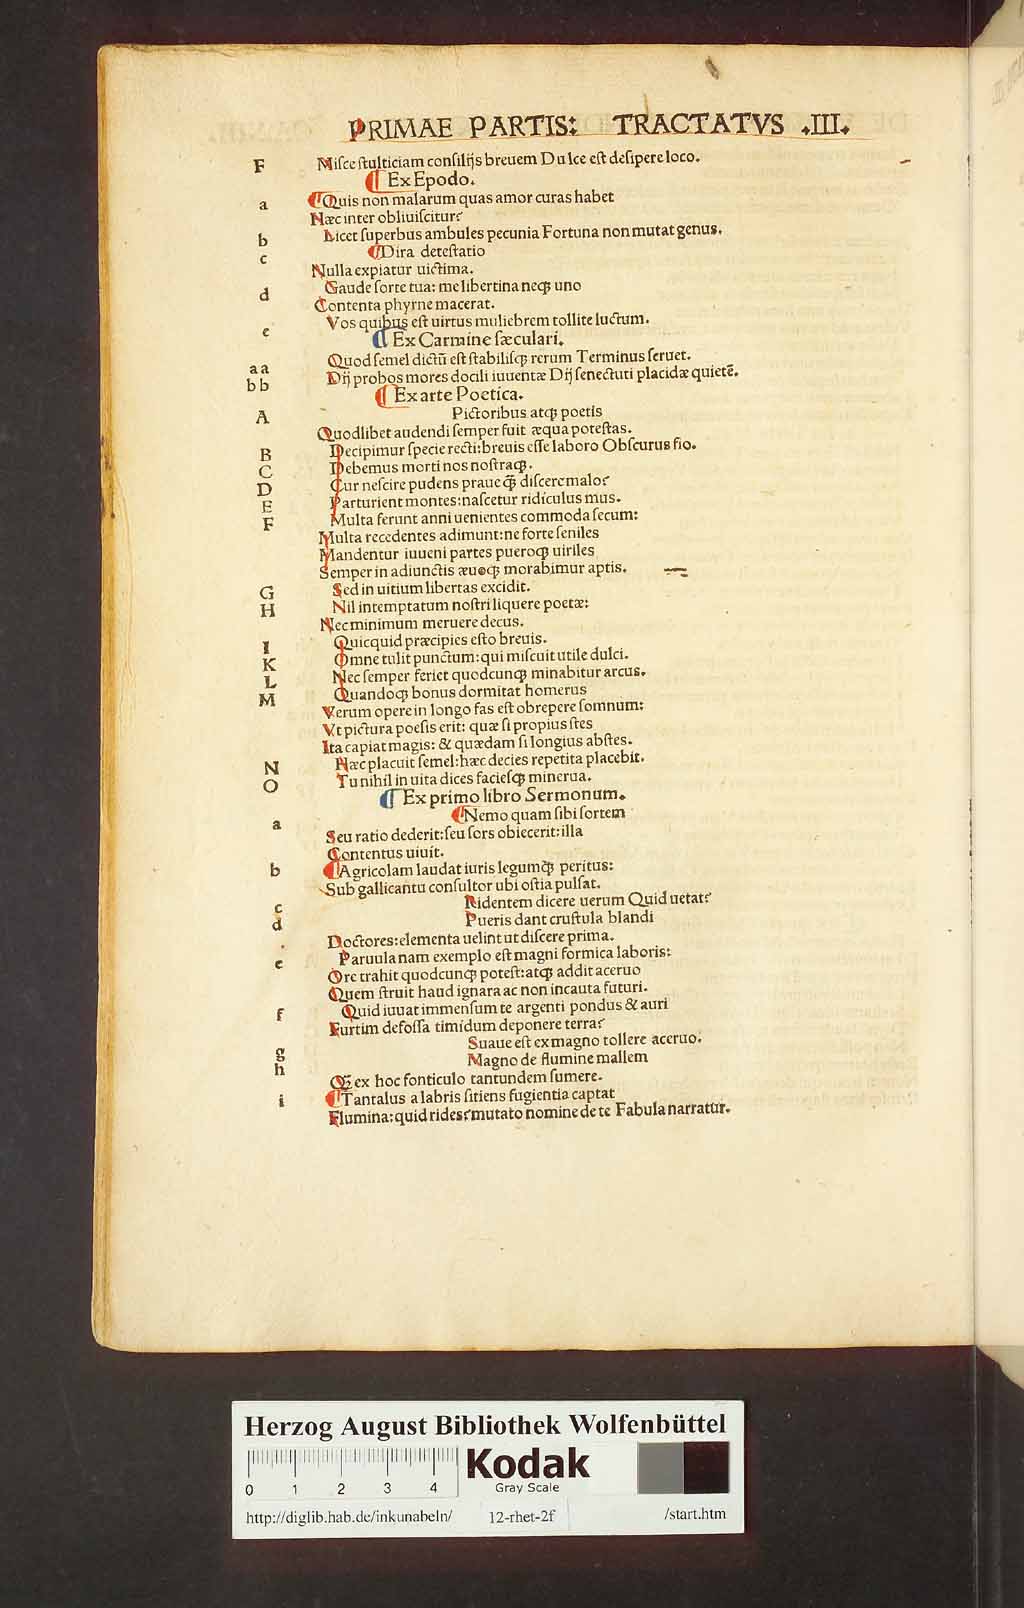 PRIMAE PARTIS: TRACTATVS .III.
F Miſce ſtulticiam conſilijs breuem Dulce eſt deſipere loco.
¶ Ex Epodo.
a ¶ Quis non malarum quas amor curas habet
Næc inter obliuiſcitur?
b Licet ſuperbus ambules pecunia Fortuna non mutat genus.
c ¶ Dira deteſtatio
Nulla expiatur uictima.
d Gaude ſorte tua: me libertina neqꝫ uno
Contenta phyrne macerat.
e Vos quibus eſt uirtus muliebrem tollite luctum.
¶ Ex Carmine ſæculari.
aa Quod ſemel dictū eſt ſtabiliſqꝫ rerum Terminus ſeruet.
bb Dij probos mores docili iuuentæ Dij ſenectuti placidæ quietē.
¶ Ex arte Poetica.
A Pictoribus atqꝫ poetis
Quodlibet audendi ſemper fuit æqua poteſtas.
B Decipimur ſpecie recti: breuis eſſe laboro Obſcurus fio.
C Debemus morti nos noſtraqꝫ.
D Cur neſcire pudens praue q̄ȝ diſcere malo?
E Parturient montes: naſcetur ridiculus mus.
F Multa ferunt anni uenientes commoda ſecum:
Multa recedentes adimunt: ne forte ſeniles
Mandentur iuueni partes pueroqꝫ uiriles
Semper in adiunctis æuoqꝫ morabimur aptis.
G Sed in uitium libertas excidit.
H Nil intemptatum noſtri liquere poetæ:
Nec minimum meruere decus.
I Quicquid præcipies eſto breuis.
K Omne tulit punctum: qui miſcuit utile dulci.
L Nec ſemper feriet quodcunqꝫ minabitur arcus.
M Quandoqꝫ bonus dormitat homerus
Verum opere in longo fas eſt obrepere ſomnum:
Vt pictura poeſis erit: quæ ſi propius ſtes
Ita capiat magis: & quædam ſi longius abſtes.
N Næc placuit ſemel: hæc decies repetita placebit.
O Tu nihil in uita dices facieſqꝫ minerua.
¶ Ex primo libro Sermonum.
a ¶ Nemo quam ſibi ſortem
Seu ratio dederit: ſeu ſors obiecerit: illa
Contentus uiuit.
b ¶ Agricolam laudat iuris legumqꝫ peritus:
Sub gallicantu conſultor ubi oſtia pulſat.
c Ridentem dicere uerum Quid uetat?
d Pueris dant cruſtula blandi
Doctores: elementa uelint ut diſcere prima.
e Paruula nam exemplo eſt magni formica laboris:
Ore trahit quodcunqꝫ poteſt: atqꝫ addit aceruo
Quem ſtruit haud ignara ac non incauta futuri.
f Quid iuuat immenſum te argenti pondus & auri
Furtim defoſſa timidum deponere terra?
g Suaue eſt ex magno tollere aceruo.
h Magno de flumine mallem
Qȝ ex hoc fonticulo tantundem ſumere.
i ¶ Tantalus a labris ſitiens fugientia captat
Flumina: quid rides? mutato nomine de te Fabula narratur.
Herzog August Bibliothek Wolfenbüttel
0 1 2 3 4
Kodak
Gray Scale
http://diglib.hab.de/inkunabeln/ 12-rhet-2f /start.htm